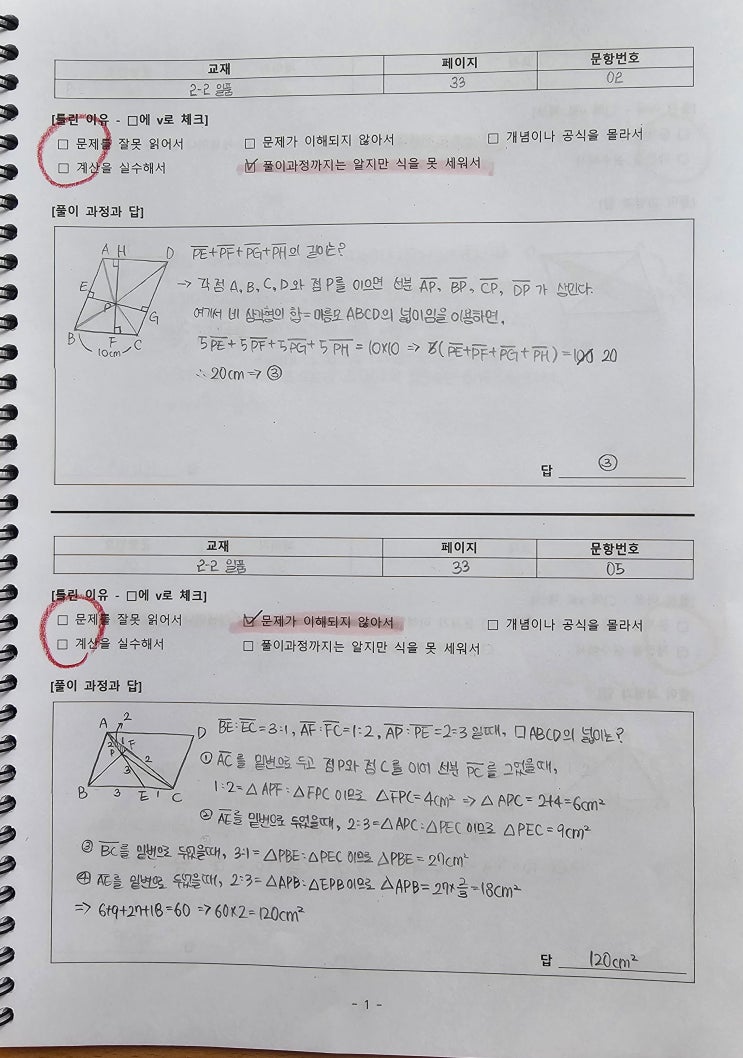 교재 페이지 문항번호
2-2 일품 33 02
[틀린 이유 - □에 v로 체크]
□ 문제를 잘못 읽어서 □ 문제가 이해되지 않아서 □ 개념이나 공식을 몰라서
□ 계산을 실수해서 ☑ 풀이과정까지는 알지만 식을 못 세워서
[풀이 과정과 답]
A H D
E P G
B F C
10cm
PE+PF+PG+PH의 길이는?
→ 각 점 A, B, C, D와 점 P를 이으면 선분 AP, BP, CP, DP 가 생긴다.
여기서 네 삼각형의 합=마름모 ABCD의 넓이임을 이용하면,
5PE+5PF+5PG+5PH=10×10 ⇒ 5(PE+PF+PG+PH)=100 20
∴ 20cm ⇒ ③
답 ③
교재 페이지 문항번호
2-2 일품 33 05
[틀린 이유 - □에 v로 체크]
□ 문제를 잘못 읽어서 ☑ 문제가 이해되지 않아서 □ 개념이나 공식을 몰라서
□ 계산을 실수해서 □ 풀이과정까지는 알지만 식을 못 세워서
[풀이 과정과 답]
2
A D
2 1 F
P 2
3
B 3 E 1 C
BE:EC=3:1, AF:FC=1:2, AP:PE=2:3 일때, □ABCD의 넓이는?
① AC를 밑변으로 두고 점P와 점C를 이어 선분 PC를 그었을때,
1:2=△APF:△FPC 이므로 △FPC=4cm² ⇒ △APC=2+4=6cm²
② AE를 밑변으로 두었을때, 2:3=△APC:△PEC 이므로 △PEC=9cm²
③ BC를 밑변으로 두었을때, 3:1=△PBE:△PEC 이므로 △PBE=27cm²
④ AE를 밑변으로 두었을때, 2:3=△APB:△EPB이므로 △APB=27×2/3=18cm²
⇒ 6+9+27+18=60 ⇒ 60×2=120cm²
답 120cm²
- 1 -